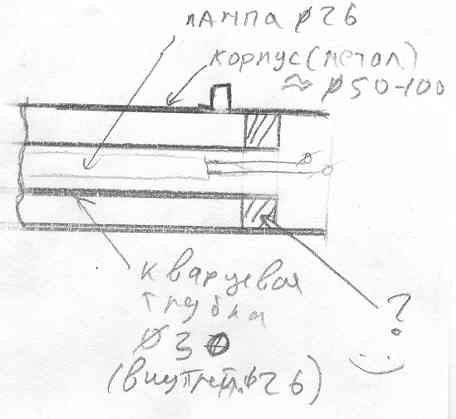 лампа ⌀26
корпус (метол)
≈ ⌀50-100
кварцевая
трубка
⌀30
(внутрен. ⌀26)
?
:)